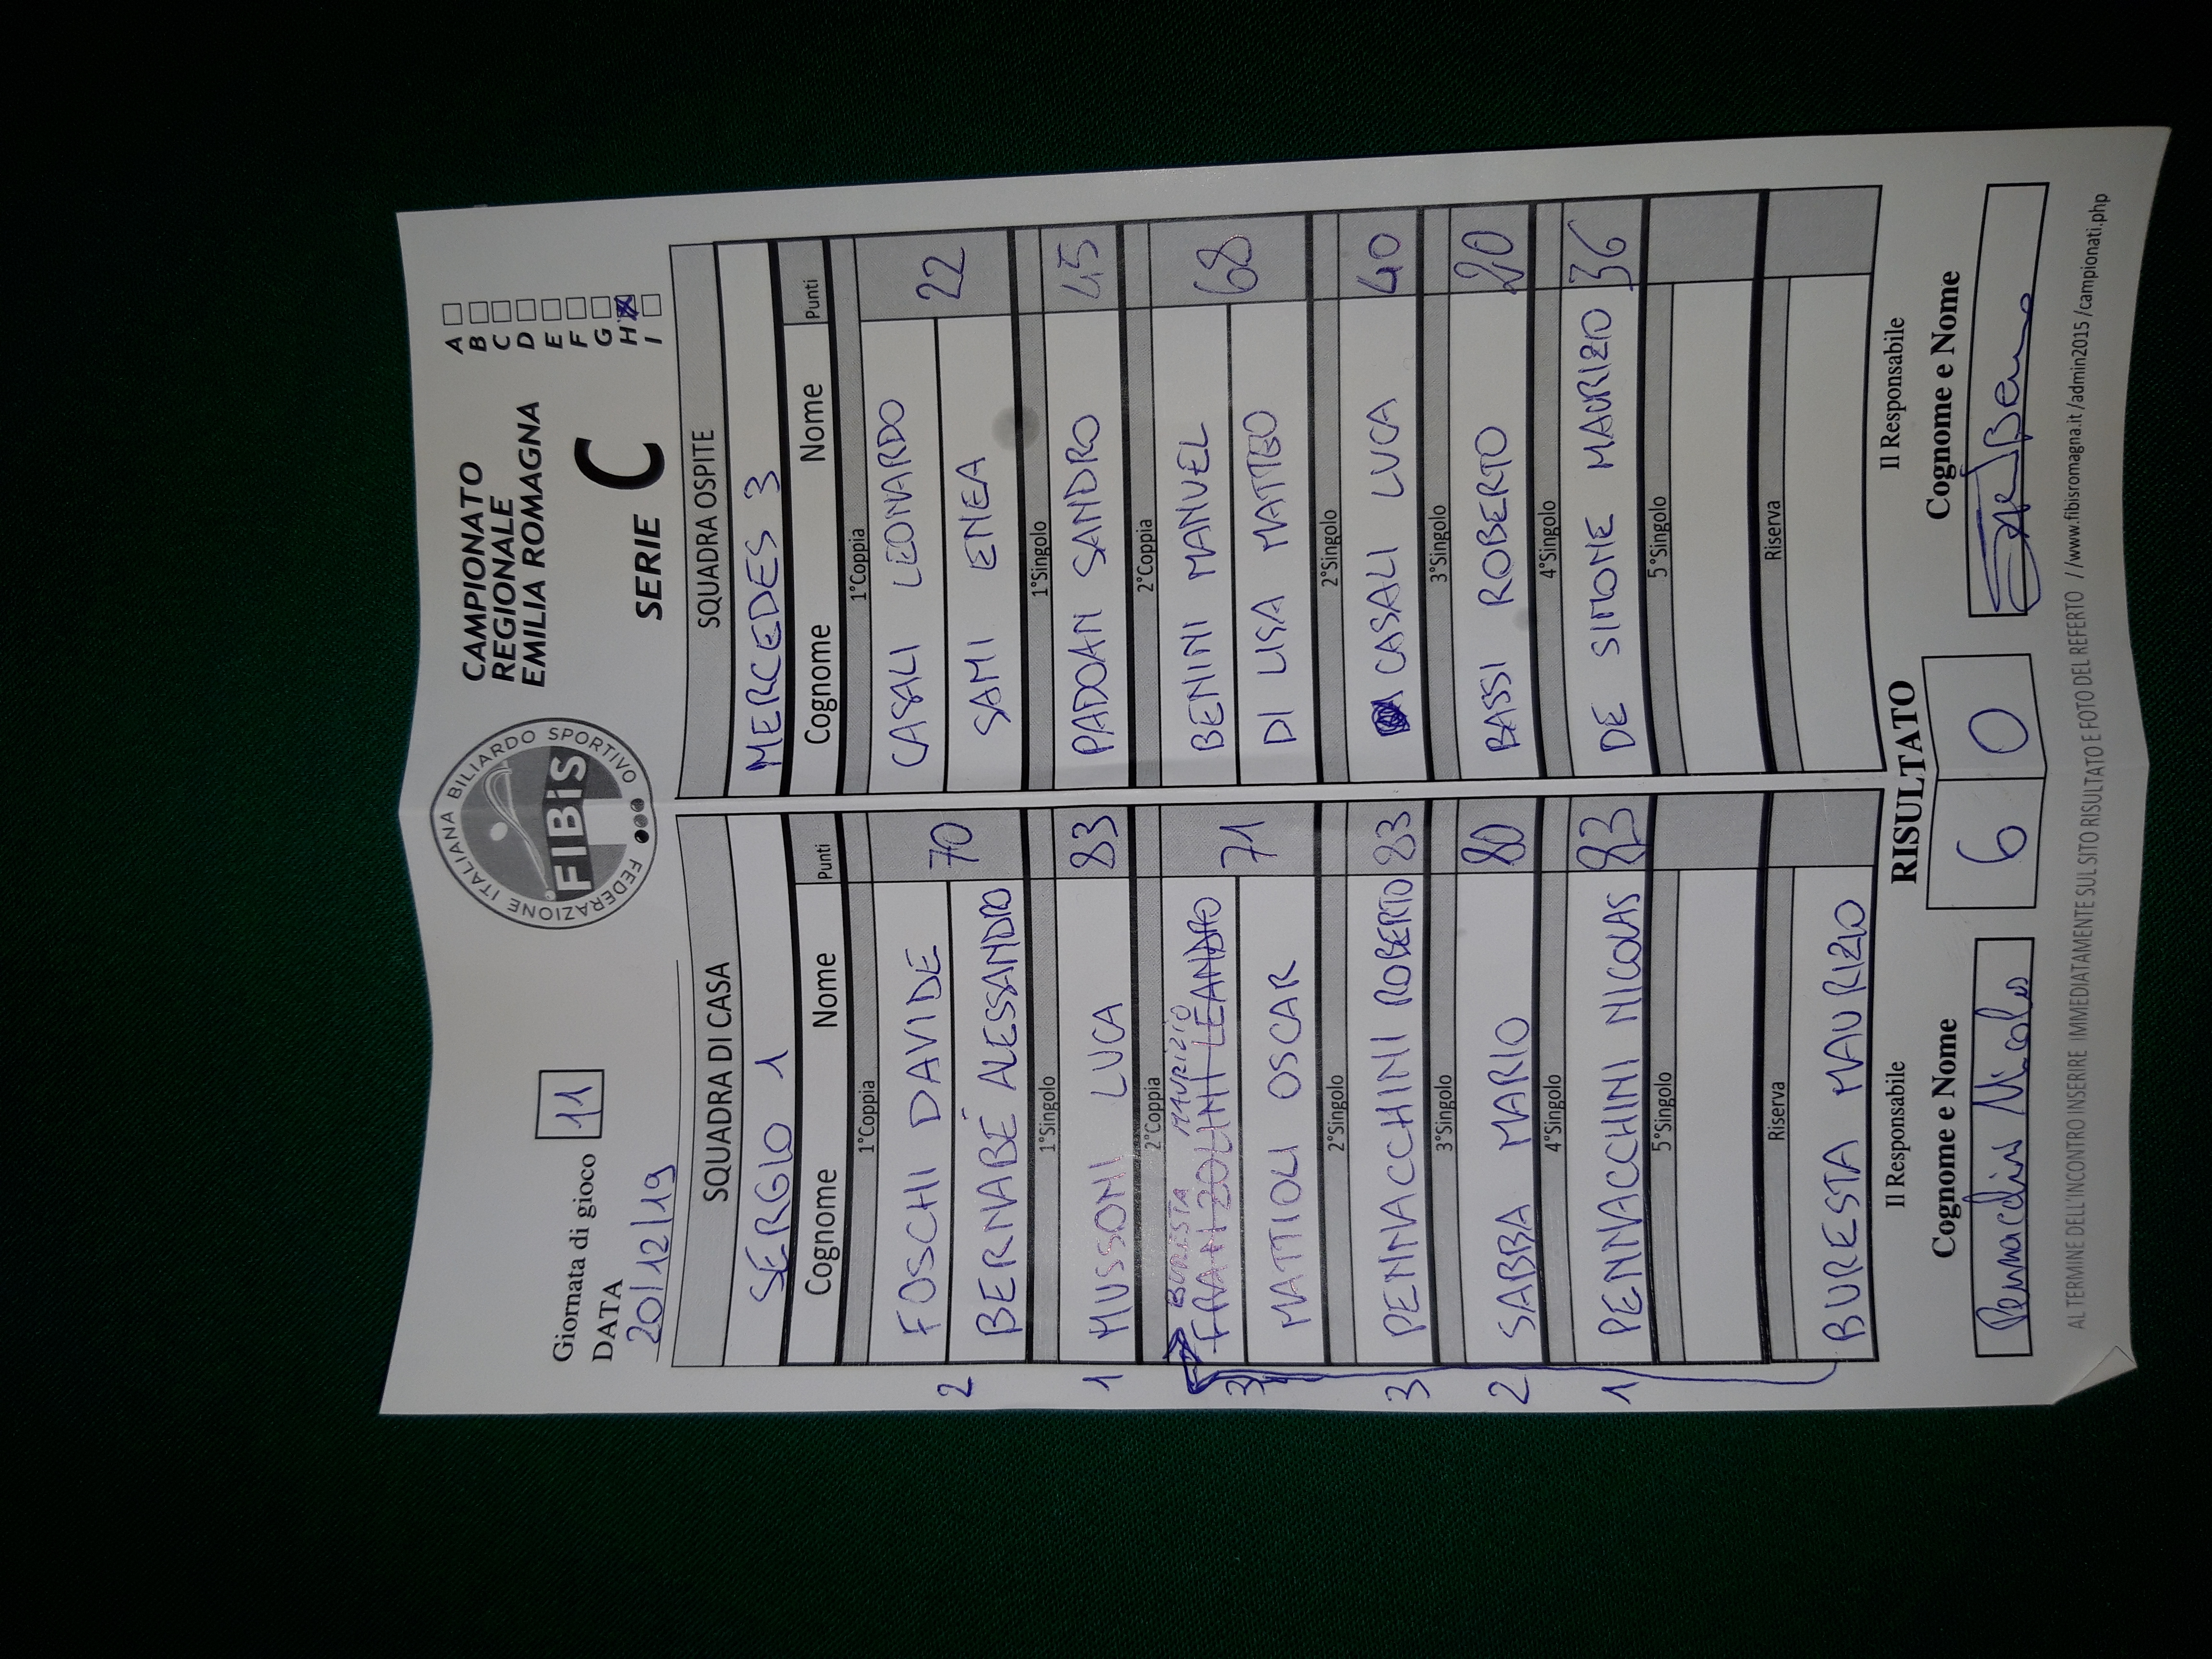 Giornata di gioco 11
DATA
20/12/19
FEDERAZIONE ITALIANA BILIARDO SPORTIVO
FIBiS
CAMPIONATO
REGIONALE
EMILIA ROMAGNA
SERIE C
A
B
C
D
E
F
G
H X
I
SQUADRA DI CASA
SERGIO 1
Cognome Nome Punti
1°Coppia
FOSCHI DAVIDE
BERNABÉ ALESSANDRO
70
2
1°Singolo
MUSSONI LUCA 83
1
2°Coppia
BURESTA MAURIZIO
FRANZOLINI LEANDRO
MATTIOLI OSCAR
71
3
2°Singolo
PENNACCHINI ROBERTO 83
3
3°Singolo
SABBA MARIO 80
2
4°Singolo
PENNACCHINI NICOLAS 83
1
5°Singolo
Riserva
BURESTA MAURIZIO
SQUADRA OSPITE
MERCEDES 3
Cognome Nome Punti
1°Coppia
CASALI LEONARDO
SAMI ENEA
22
1°Singolo
PADOAN SANDRO 45
2°Coppia
BENINI MANUEL
DI LISA MATTEO
68
2°Singolo
CASALI LUCA 40
3°Singolo
BASSI ROBERTO 20
4°Singolo
DE SIMONE MAURIZIO 36
5°Singolo
Riserva
Il Responsabile
Cognome e Nome
Pennacchini Nicolas
RISULTATO
6 0
Il Responsabile
Cognome e Nome
AL TERMINE DELL'INCONTRO INSERIRE IMMEDIATAMENTE SUL SITO RISULTATO E FOTO DEL REFERTO //www.fibisromagna.it/admin2015/campionati.php